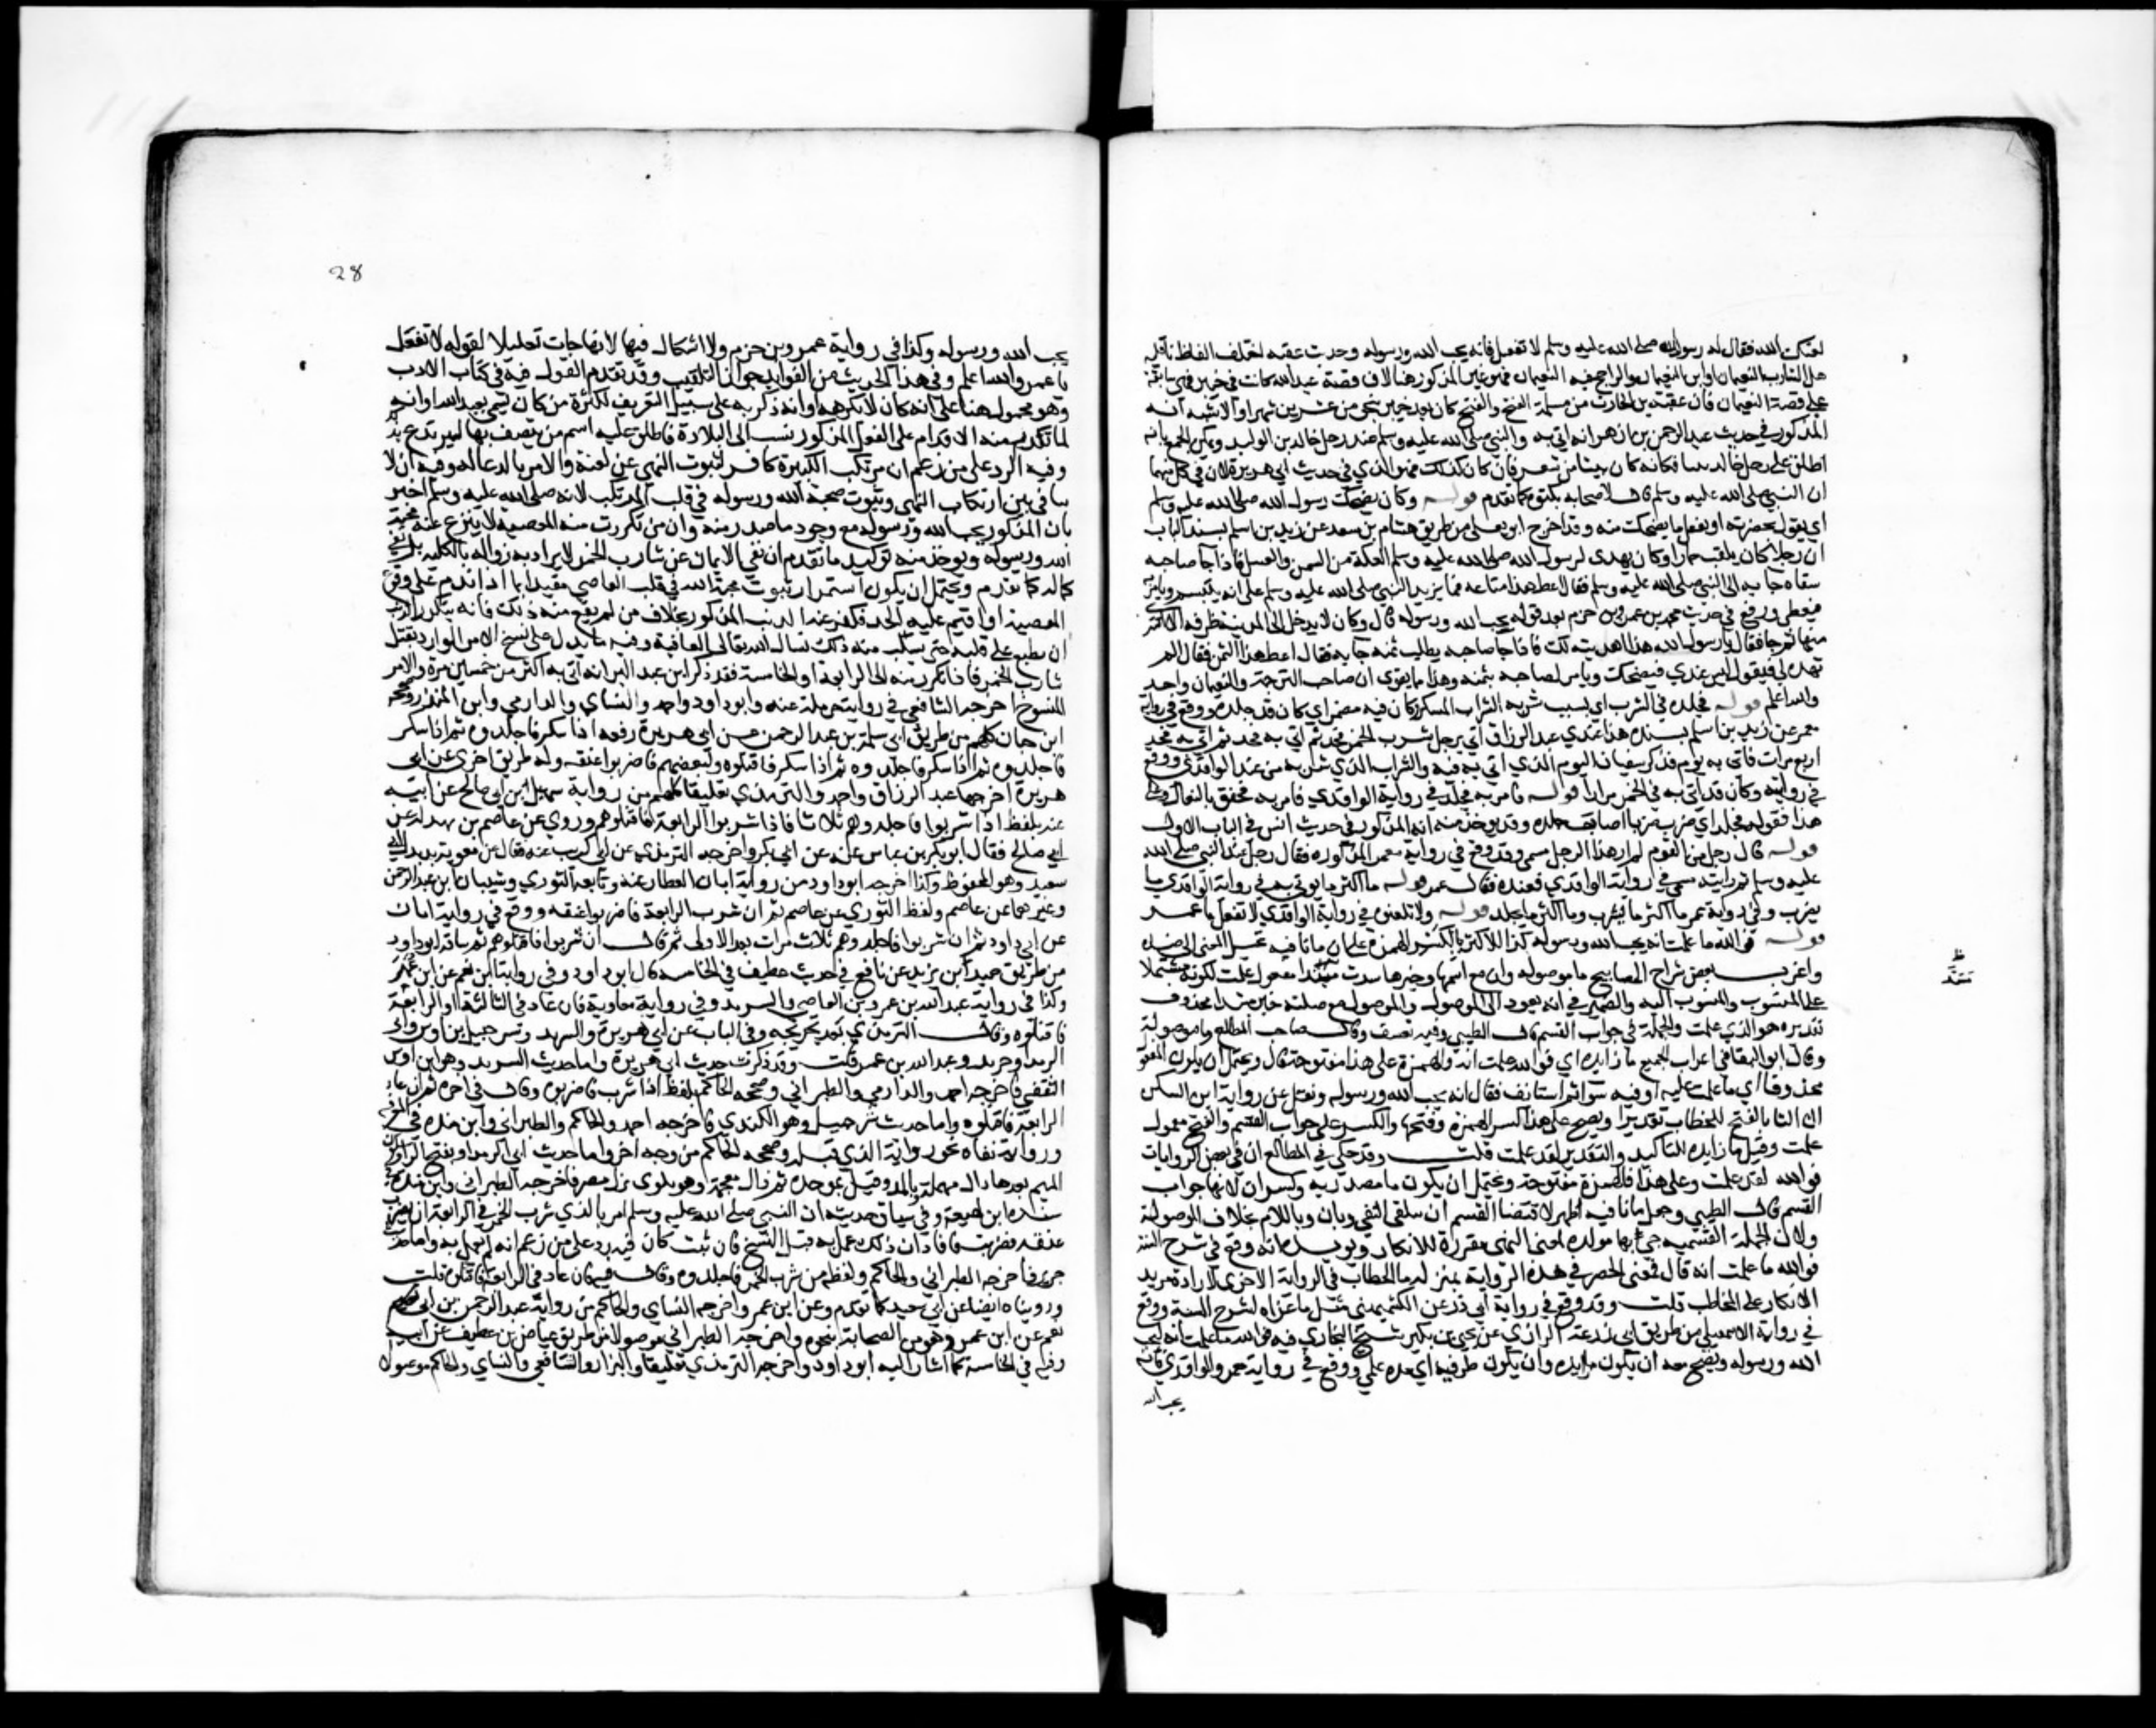 لعنك الله فقال له رسول الله صلى الله عليه وسلم لا تفعل فانه يحب الله ورسوله وحديث عقبة اختلف الفاظ ناقليه
هل الشارب النعيمان او ابن النعيمان والراجح فيه النعيمان فهو غير المذكور هنا لان قصة عبد الله كانت في خيبر فهي سابقة
على قصة النعيمان فان عقبة بن الحارث من مسلمة الفتح والفتح كان بعد خيبر بنحو من عشرين شهرا والاشبه انه
المذكور في حديث عبد الرحمن بن ازهر انه اتي به والنبي صلى الله عليه وسلم عند رحل خالد بن الوليد ويمكن الجمع بانه
اطلق على رحل خالد بيتا فكانه كان بيتا من شعر فان كان كذلك فهو الذي في حديث ابي هريرة لان في كل منهما
ان النبي صلى الله عليه وسلم قال لاصحابه بكتوه كما تقدم قوله وكان يضحك رسول الله صلى الله عليه وسلم
اي يقول بحضرته او يفعل ما يضحك منه وقد اخرج ابو يعلى من طريق هشام بن سعد عن زيد بن اسلم بسند الباب
ان رجلا كان يلقب حمارا وكان يهدي لرسول الله صلى الله عليه وسلم العكة من السمن والعسل فاذا جا صاحبه
يتقاضاه جا به الى النبي صلى الله عليه وسلم فقال اعط هذا متاعه فما يزيد النبي صلى الله عليه وسلم على انه يتبسم ويامر به
فيعطى ووقع في حديث محمد بن عمرو بن حزم بعد قوله يحب الله ورسوله قال وكان لا يدخل الى المدينة طرفة الا اشترى
منها ثم جا فقال يا رسول الله هذا اهديته لك فاذا جا صاحبه يطلب ثمنه جا به فقال اعط هذا الثمن فيقول الم
تهده لي فيقول ليس عندي فيضحك ويامر لصاحبه بثمنه وهذا مما يقوي ان صاحب الترجمة والنعيمان واحد
والله اعلم قوله قد جلده في الشراب اي بسبب شربه الشراب المسكر وكان فيه مضمرا اي كان قد جلده ووقع في رواية
معمر عن زيد بن اسلم بسنده هذا عند عبد الرزاق اتي برجل شرب الخمر فحد ثم اتي به فحد ثم اتي به فحد
اربع مرات قوله فاتي به يوما فذكر سفيان اليوم الذي اتي به فيه والشراب الذي شربه من عند الواقدي ووقع
في روايته وكان قد اتي به في الخمر مرارا قوله فامر به فجلد في رواية الواقدي فامر به فخفق بالنعال وعلى
هذا فقوله فجلد اي ضرب ضربا اصاب جلده وقد يوخذ منه انه المذكور في حديث انس في الباب الاول
قوله قال رجل من القوم لم ار هذا الرجل مسمى وقد وقع في رواية معمر المذكورة فقال رجل عند النبي صلى الله
عليه وسلم ثم رايته مسمى في رواية الواقدي فعنده فقال عمر قوله ما اكثر ما يوتى به في رواية الواقدي ما
يضرب وفي رواية معمر ما اكثر ما يشرب وما اكثر ما يجلد قوله ولا تلعنوه في رواية الواقدي لا تفعل يا عمر
قوله فوالله ما علمت انه يحب الله ورسوله كذا للاكثر بكسر الهمزة على ان ما نافية يحيل المعنى الى ضده
واغرب بعض شراح المصابيح ما موصولة وان مع اسمها وخبرها سدت مسد مفعولي علمت لكونه مشتملا
على المنسوب والمنسوب اليه والضمير في انه يعود الى الموصول والموصول مع صلته خبر مبتدا محذوف
تقديره هو الذي علمت والجملة في جواب القسم قال الطيبي وفيه تعسف وقال صاحب المطالع ما موصولة
وقال ابو البقا في اعراب الجمع ما زايدة اي فوالله علمت انه والهمزة على هذا مفتوحة قال ويحتمل ان يكون المفعول
محذوفا اي ما علمت عليه او فيه سوءا ثم استانف فقال انه يحب الله ورسوله ونقل عن رواية ابن السكن
ان التا بالفتح للخطاب تقديرا ويصح على هذا كسر الهمزة وفتحها والكسر على جواب القسم والفتح معمول
علمت وقيل ما زايدة للتاكيد والتقدير لقد علمت قلت وقد حكي في المطالع ان في بعض الروايات
فوالله لقد علمت وعلى هذا فالهمزة مفتوحة ويحتمل ان يكون ما مصدرية وكسر ان لانها جواب
القسم قال الطيبي وجعل ما نافية اظهر لاقتضا القسم ان يتلقى بالنفي وبان وباللام بخلاف الموصولة
ولان الجملة القسمية جيء بها مؤكدة لمعنى النهي مقررة للانكار ويويده انه وقع في شرح السنة
فوالله ما علمت الا انه قال فمعنى الحصر في هذه الرواية بمنزلة تا الخطاب في الرواية الاخرى لارادة مزيد
الانكار على المخاطب قلت وقد وقع في رواية ابي ذر عن الكشميهني مثل ما عزاه لشرح السنة ووقع
في رواية الاسمعيلي من طريق ابي زرعة الرازي عن يحيى بن بكير شيخ البخاري فيه فوالله ما علمت انه ليحب
الله ورسوله ويصح معه ان يكون ما زايدة وان يكون ظرفية اي مدة علمي ووقع في رواية معمر والواقدي فانه
يحب الله
28
يحب الله ورسوله وكذا في رواية محمد بن عمرو بن حزم ولا اشكال فيها لانها جات تعليلا لقوله لا تفعل
يا عمر والله اعلم وفي هذا الحديث من الفوايد جواز التلقيب وقد تقدم القول فيه في كتاب الادب
وهو محمول هنا على انه كان لا يكرهه او انه ذكر به على سبيل التعريف لكثرة من كان يسمى بعبد الله او انه
لما تكرر منه الاقدام على الفعل المذكور نسب الى البلادة فاطلق عليه اسم من يتصف بها ليرتدع بذلك
وفيه الرد على من زعم ان مرتكب الكبيرة كافر لثبوت النهي عن لعنه والامر بالدعا له وفيه ان لا
تنافي بين ارتكاب النهي وثبوت محبة الله ورسوله في قلب المرتكب لانه صلى الله عليه وسلم اخبر
بان المذكور يحب الله ورسوله مع وجود ما صدر منه وان من تكررت منه المعصية لا ينزع عنه محبة
الله ورسوله ويوخذ منه توكيد ما تقدم ان نفي الايمان عن شارب الخمر لا يراد به زواله بالكلية بل نفي
كماله كما تقدم ويحتمل ان يكون استمرار ثبوت محبة الله في قلب العاصي مقيدا بما اذا ندم على وقوع
المعصية او اقيم عليه الحد فكفر عنه الذنب المذكور بخلاف من لم يقع منه ذلك فانه يتكرر الذنب
ان يطبع على قلبه حتى يسلب منه ذلك نسال الله تعالى العافية وفيه ما يدل على نسخ الامر الوارد بقتل
شارب الخمر فاذا تكرر منه الى الرابعة او الخامسة فقد ذكر ابن عبد البر انه اتي به اكثر من خمسين مرة والامر
المنسوخ اخرجه الشافعي في رواية حرملة عنه وابو داود واحمد والنساي والدارمي وابن المنذر وصححه
ابن حبان كلهم من طريق ابي سلمة بن عبد الرحمن عن ابي هريرة رفعه اذا سكر فاجلدوه ثم اذا سكر
فاجلدوه ثم اذا سكر فاجلدوه ثم اذا سكر فاقتلوه ولبعضهم فاضربوا عنقه وله طريق اخرى عن ابي
هريرة اخرجها عبد الرزاق واحمد والترمذي تعليقا كلهم من رواية سهيل بن ابي صالح عن ابيه
عنه بلفظ اذا شربوا فاجلدوهم ثلاثا فاذا شربوا الرابعة فاقتلوهم وروي عن عاصم بن بهدلة عن
ابي صالح فقال ابو بكر بن عياش عنه عن ابي بكر واخرجه الترمذي عن ابي كريب عنه فقال عن معوية بدل ابي
سعيد وهو المحفوظ وكذا اخرجه ابو داود من رواية ابان العطار عنه وتابعه الثوري وشيبان بن عبد الرحمن
وغيرهما عن عاصم ولفظ الثوري عن عاصم ثم ان شرب الرابعة فاضربوا عنقه ووقع في رواية ابان
عن ابي داود ثم ان شربوا فاجلدوهم ثلاث مرات بعد الاولى ثم قال ان شربوا فاقتلوهم ثم ساقه ابو داود
من طريق حميد بن يزيد عن نافع في حديث غطيف في الخامسة قال ابو داود وفي رواية ابن نعم عن ابن عمر
وكذا في رواية عبد الله بن عمرو بن العاصي والشريد وفي رواية معاوية فان عاد في الثالثة او الرابعة
فاقتلوه وقال الترمذي بعد تخريجه وفي الباب عن ابي هريرة والشريد وشرحبيل بن اوس وابي
الرمدا وجرير وعبد الله بن عمر قلت وقد ذكرت حديث ابي هريرة واما حديث الشريد وهو ابن اوس
الثقفي فاخرجه احمد والدارمي والطبراني وصححه الحاكم بلفظ اذا شرب فاضربوه وقال في اخره ثم ان عاد
الرابعة فاقتلوه واما حديث شرحبيل وهو الكندي فاخرجه احمد والحاكم والطبراني وابن منده في المعرفة
ورواته ثقات نحو رواية الذي قبله وصححه الحاكم من وجه اخر واما حديث ابي الرمدا وبفتح الرا وسكون
الميم بعدها دال مهملة وبالمد وقيل بموحدة ثم ذال معجمة وهو بلوي نزل مصر فاخرجه الطبراني وابن منده في
سنده ابن لهيعة وفي سياق حديثه ان النبي صلى الله عليه وسلم امر بالذي شرب الخمر في الرابعة ان يضرب
عنقه فضربت فافاد ان ذلك عمل به قبل النسخ فان ثبت كان فيه رد على من زعم انه لم يعمل به واما حديث
جرير فاخرجه الطبراني والحاكم ولفظه من شرب الخمر فاجلدوه وقال فيه فان عاد في الرابعة فاقتلوه قلت
وروينا ه ايضا عن ابي سعيد كما تقدم وعن ابن عمر واخرجه النساي والحاكم من رواية عبد الرحمن بن ابي
نعم عن ابن عمر ونفر من الصحابة بنحوه واخرجه الطبراني موصولا من طريق عياض بن غطيف عن ابيه
وفيه في الخامسة كما اشار اليه ابو داود واخرجه الترمذي تعليقا والبزار والشافعي والنساي والحاكم موصولا